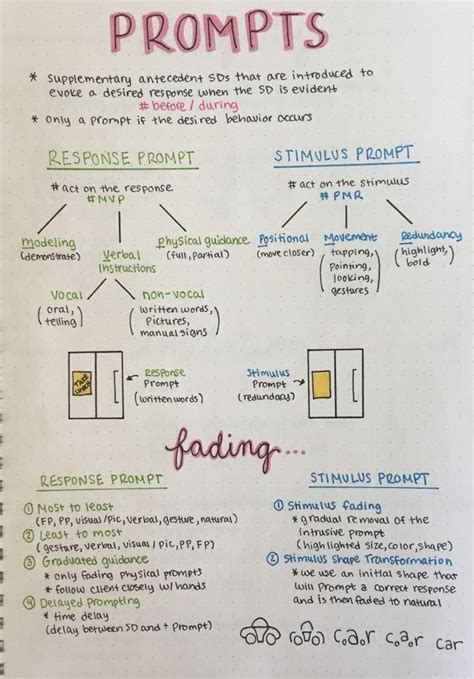 PROMPTS
* Supplementary antecedent SDs that are introduced to
evoke a desired response when the SD is evident
# before / during
* Only a prompt if the desired behavior occurs
RESPONSE PROMPT
# act on the response
# MVP
Modeling
(demonstrate)
Verbal
Instructions
Physical guidance
(full, partial)
Vocal
(oral,
telling)
non-vocal
(written words,
Pictures,
manual signs)
STIMULUS PROMPT
# act on the stimulus
# PMR
Positional
(move closer)
Movement
(tapping,
pointing,
looking,
gestures)
Redundancy
(highlight,
bold)
Response
Prompt
(written words)
Stimulus
Prompt
(redundacy)
fading...
RESPONSE PROMPT
① Most to least
(FP, PP, visual/Pic, verbal, gesture, natural)
② Least to most
(gesture, verbal, visual / pic, PP, FP)
③ Graduated guidance
* only fading physical prompts
* follow client closely w/ hands
④ Delayed Prompting
* time delay
(delay between SD and + Prompt)
STIMULUS PROMPT
① Stimulus fading
* gradual removal of the
intrusive prompt
(highlighted size, color, shape)
② Stimulus Shape Transformation
* we use an initial shape that
will prompt a correct response
and is then faded to natural
car car car